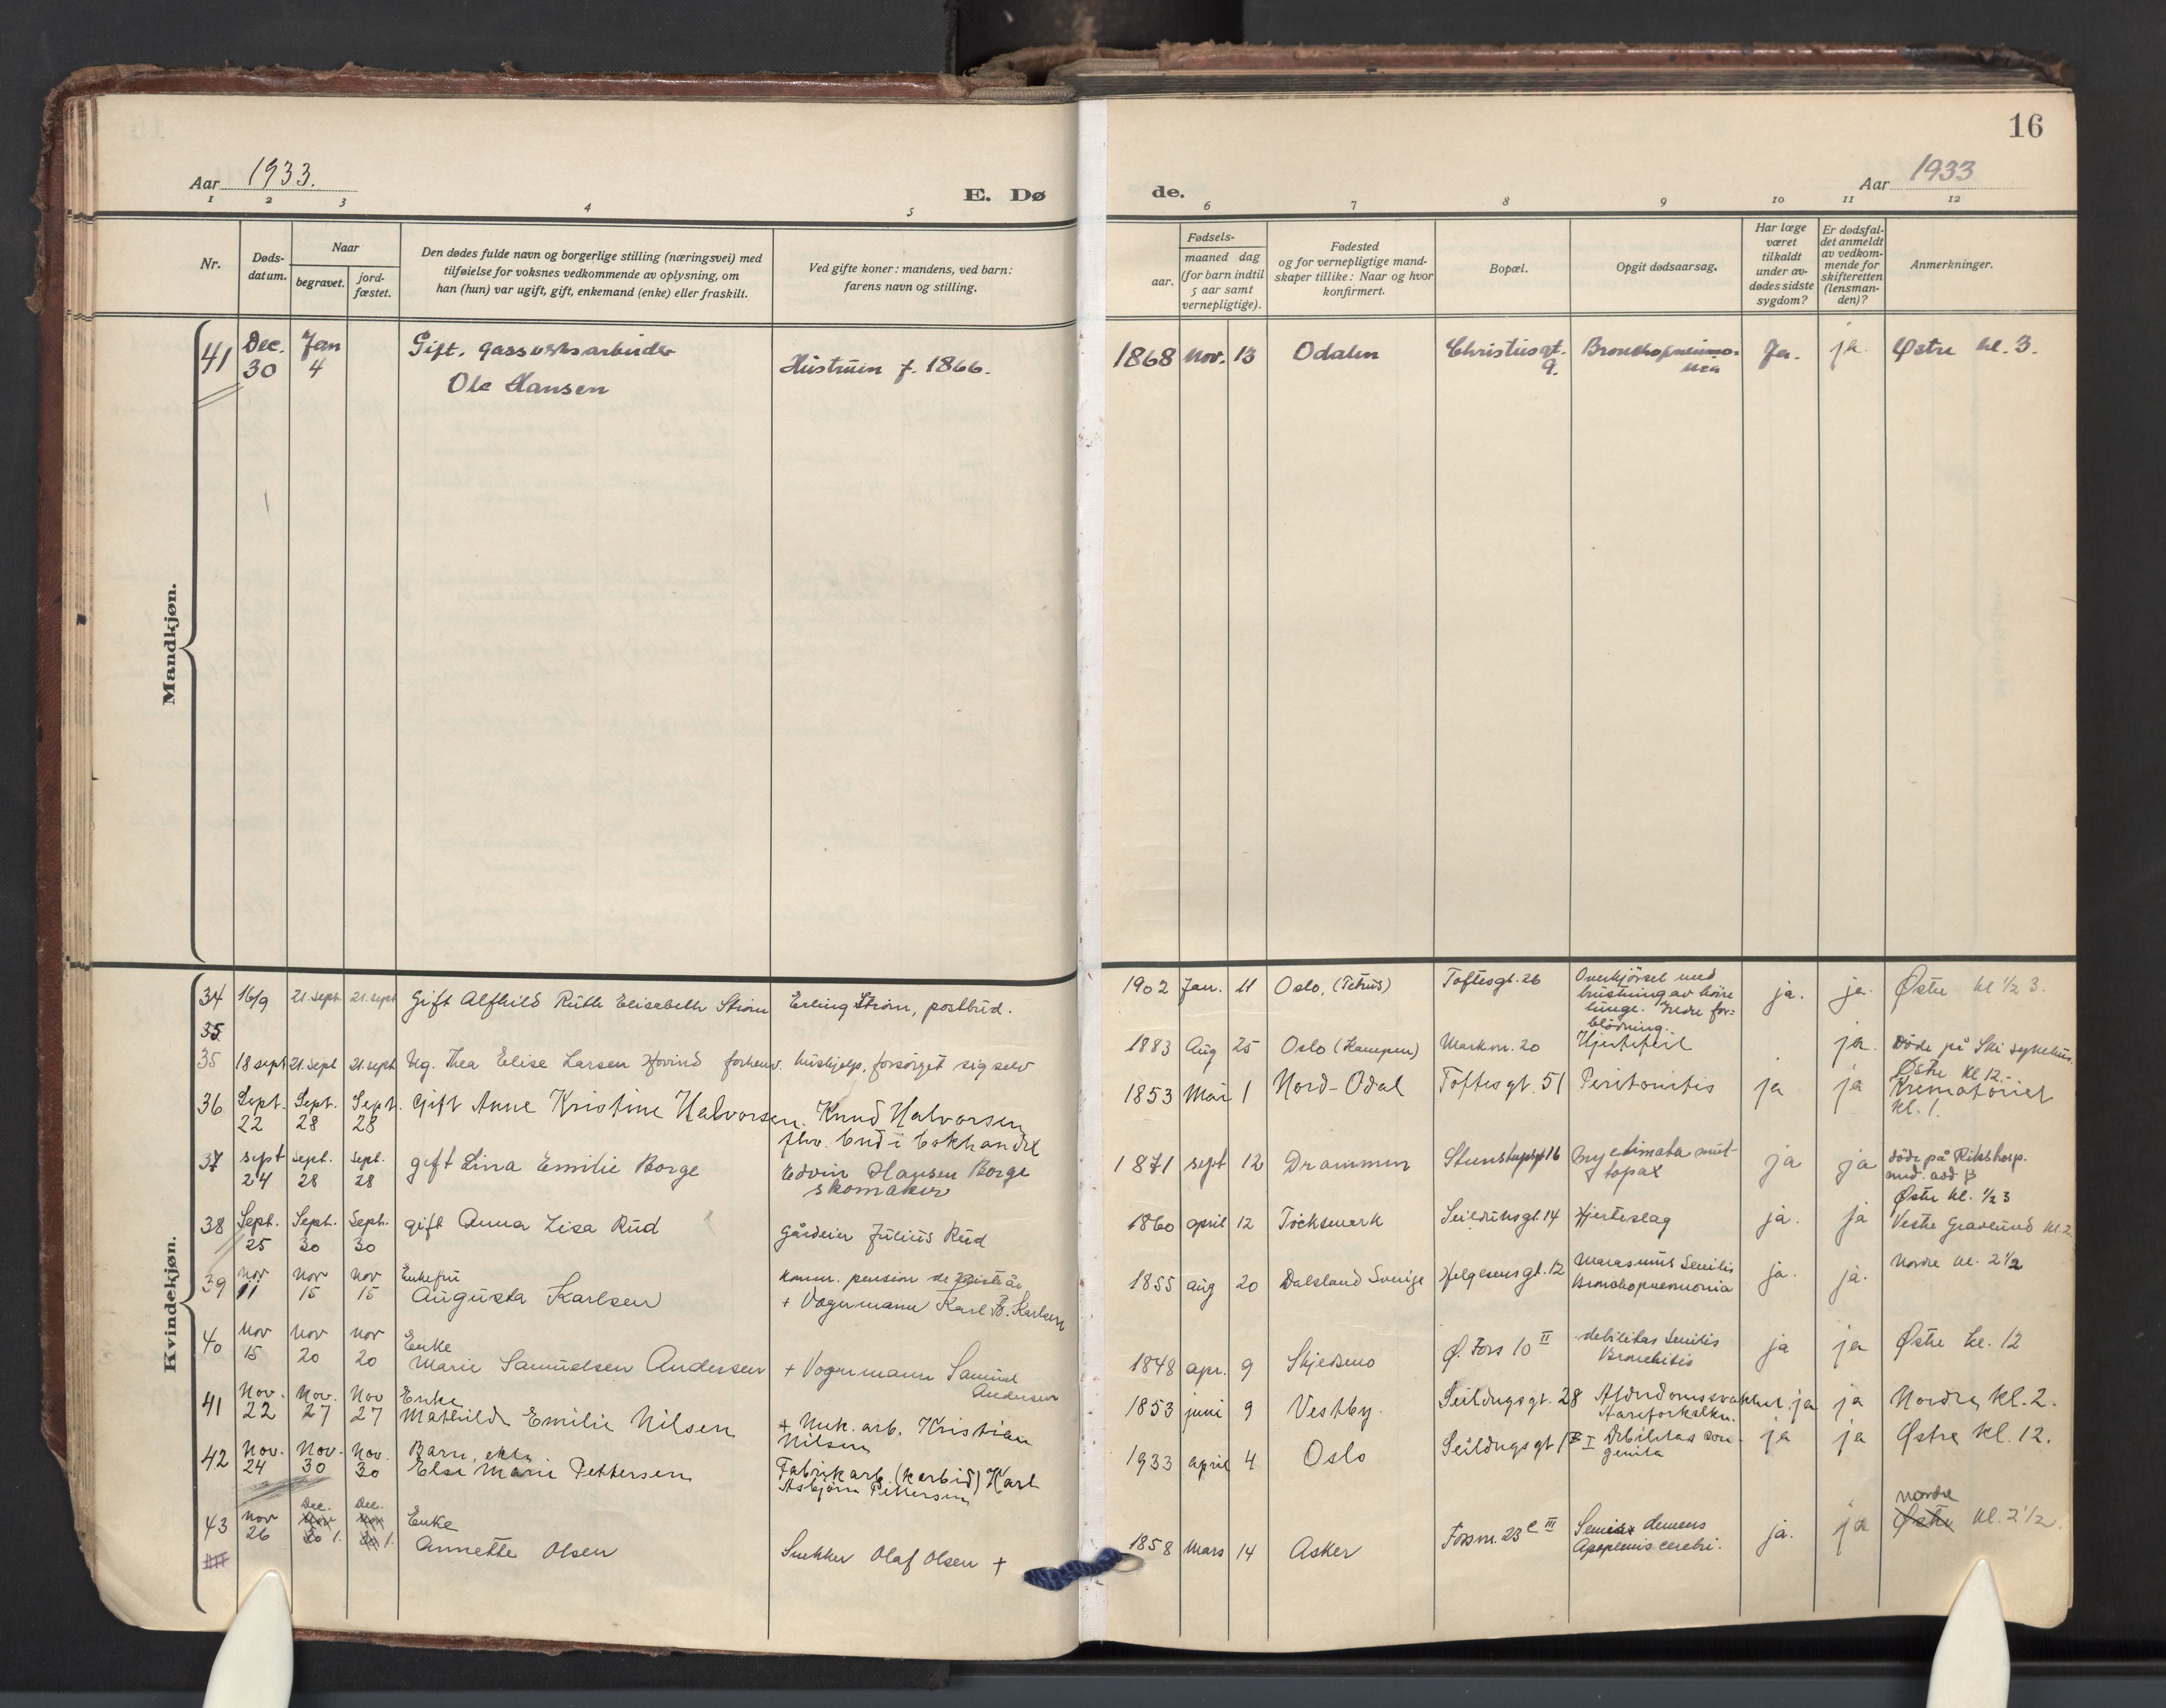 16
Aar 1933.
E. Dø
de.
Aar 1933
1 2 3 4 5
6 7 8 9 10 11 12
Nr.
Døds-
datum.
Naar
begravet.
jord-
fæstet.
Den dødes fulde navn og borgerlige stilling (næringsvei) med
tilføielse for voksnes vedkommende av oplysning, om
han (hun) var ugift, gift, enkemand (enke) eller fraskilt.
Ved gifte koner: mandens, ved barn:
farens navn og stilling.
Fødsels-
aar.
maaned dag
(for barn indtil
5 aar samt
vernepligtige).
Fødested
og for vernepligtige mand-
skaper tillike: Naar og hvor
konfirmert.
Bopæl.
Opgit dødsaarsag.
Har læge
været
tilkaldt
under av-
dødes sidste
sygdom?
Er dødsfal-
det anmeldt
av vedkom-
mende for
skifteretten
(lensman-
den)?
Anmerkninger.
Mandkjøn.
41 Dec. 30 Jan 4 Gift. gassverksarbeider
Ole Hansen
Hustruen f. 1866.
1868 Nov. 13 Odalen Christiesgt. 9. Bronchopneumo-
nia Ja. ja. Østre kl. 3.
Kvindekjøn.
34 16/9 21. sept 21. sept Gift Alfhild Ruth Elisabeth Strøm Erling Strøm, postbud.
1902 Jan. 11 Oslo, (Petrus) Toftesgt. 26 Overkjørsel med
bristning av høire
lunge. Indre for-
blødning. ja. ja. Østre kl ½ 3.
35
35 18 sept 21. sept 21. sept Ug. Thea Elise Larsen Hovind forhenv. hushjelp, forsørget sig selv
1883 Aug 25 Oslo (Kampen) Markvn. 20 Hjertefeil ja. Døde på Ski sykehus.
Østre kl 12.
36 Sept. 22 Sept. 28 Sept. 28 Gift Anne Kristine Halvorsen. Knud Halvorsen
fhv. bud i bokhandel
1853 Mai 1 Nord-Odal Toftes gt. 51 Peritonitis ja ja Krematoriet
kl. 1.
37 sept 24 sept. 28 sept. 28 gift Lina Emilie Borge Edvin Hansen Borge
skomaker
1871 sept 12 Drammen ja ja døde på Rikshosp.
med. avd B
Østre kl. ½ 3
38 Sept. 25 Sept. 30 Sept. 30 gift Anna Lisa Rud Gårdeier Julius Rud
1860 april 12 Töcksmark Seilduksgt. 14 Hjerteslag ja. ja Vestre Gravlund kl. 2
39 Nov 11 Nov 15 Nov 15 Enkefru
Augusta Karlsen
Komm. pension de siste år
+ Vognmann Karl B. Karlsen
1855 aug 20 Dalsland Sverige Helgesensgt. 12 Marasmus Senilis
Bronchopneumonia ja. ja. Nordre kl. 2½
40 Nov 15 Nov 20 Nov 20 Enke
Marie Samuelsen Andersen + Vognmann Samuel
Andersen
1848 apr. 9 Skjedsmo Ø. Foss 10 II debilitas Senilis
Bronchitis ja ja Østre kl. 12
41 Nov. 22 Nov. 27 Nov 27 Enke
Mathilde Emilie Nilsen + Mek. arb. Kristian
Nilsen
1853 juni 9 Vestby. Seildugsgt. 28 Alderdomssvakhet.
Aareforkalkn. ja ja Nordre kl. 2.
42 Nov. 24 Nov. 30 Nov. 30 Barn, ekte
Else Marie Pettersen Fabrikarb. (karbid) Karl
Asbjørn Pettersen
1933 april 4 Oslo Seildugsgt I Debilitas con-
genita ja ja Østre kl. 12.
43 Nov 26 Dec. 1. Dec. 1. Enke
Annette Olsen Snekker Olaf Olsen +
1858 Mars 14 Asker Fossvn. 23 c III Senias demens
Apoplexis cerebri. ja. ja Nordre
Østre kl. 2½.